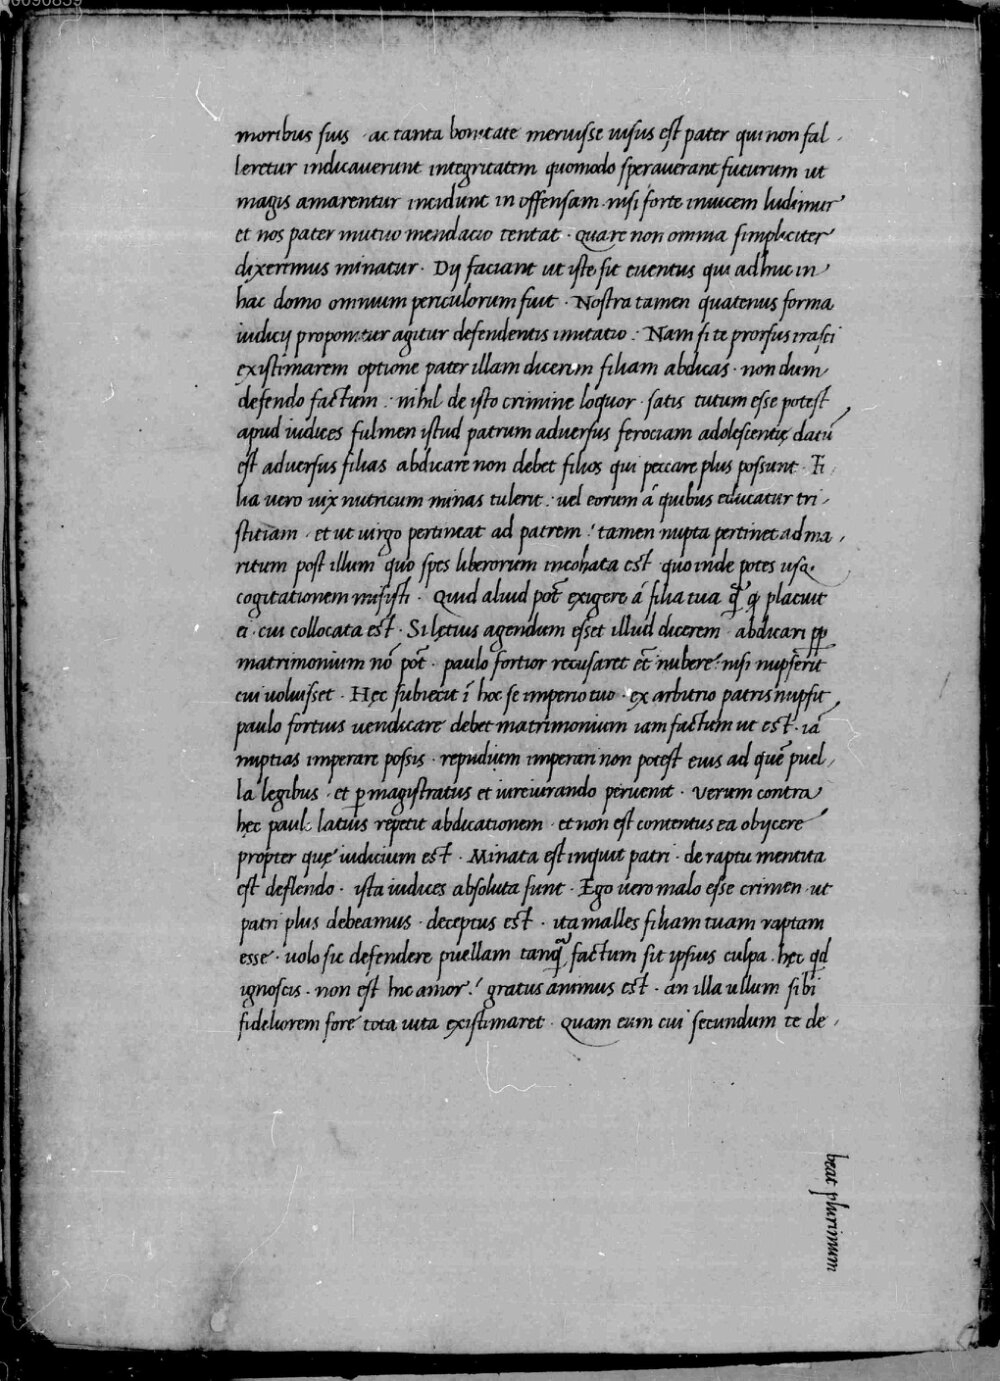 00090859
moribus suis · ac tanta bonitate meruisse uisus est pater qui non fal,
leretur indicauerunt integritatem quomodo sperauerant futurum ut
magis amarentur incidunt in offensam nisi forte inuicem ludimur
et nos pater mutuo mendacio tentat · Quare non omnia simpliciter
dixerimus minatur · Dij faciant ut iste sit euentus qui adhuc in
hac domo omnium periculorum fuit · Nostra tamen quatenus forma
iudicij proponitur agitur defendentis imitatio : Nam si te prorsus irasci
existimarem optione pater illam dicerem filiam abdicas · non dum
defendo factum : nihil de isto crimine loquor · satis tutum esse potest
apud iudices fulmen istud patrum aduersus ferociam adolescentię datū
est aduersus filias abdicare non debet filios qui peccare plus possunt · Fi,
lia uero uix nutricum minas tulerit : uel eorum á quibus educatur tri,
stitiam · et ut uirgo pertineat ad patrem : tamen nupta pertinet ad ma,
ritum post illum quo spes liberorum incohata est quo inde potes usq·
cogitationem misisti · Quid aliud pot̄ exigere á filia tua q̄ꝫ q̄ placuit
ei · cui collocata est · Si lętius agendum esset illud dicerem abdicari pp̄
matrimonium nō pot̄ · paulo fortior recusaret et̄ nubere : nisi nupserit
cui uoluisset · Hęc subiecit ī hoc se imperio tuo · ex arbitrio patris nupsit
paulo fortius uendicare debet matrimonium iam factum ut est · iā
nuptias imperare possis · repudium imperari non potest eius ad quē puel,
la legibus · et ꝑ magistratus et iureiurando peruenit · Verum contra
hęc paulo latius repetit abdicationem · et non est contentus ea obijcere
propter quę iudicium est · Minata est inquit patri · de raptu mentita
est deflendo · ista iudices absoluta sunt · Ego uero malo esse crimen ut
patri plus debeamus · deceptus est · ita malles filiam tuam raptam
esse · uolo sic defendere puellam tanq̄ factum sit ipsius culpa · hęc qd
ignoscis · non est hic amor : gratus animus est · an illa ullum sibi
fideliorem fore tota uita existimaret · Quam eum cui secundum te de,
beat plurimum